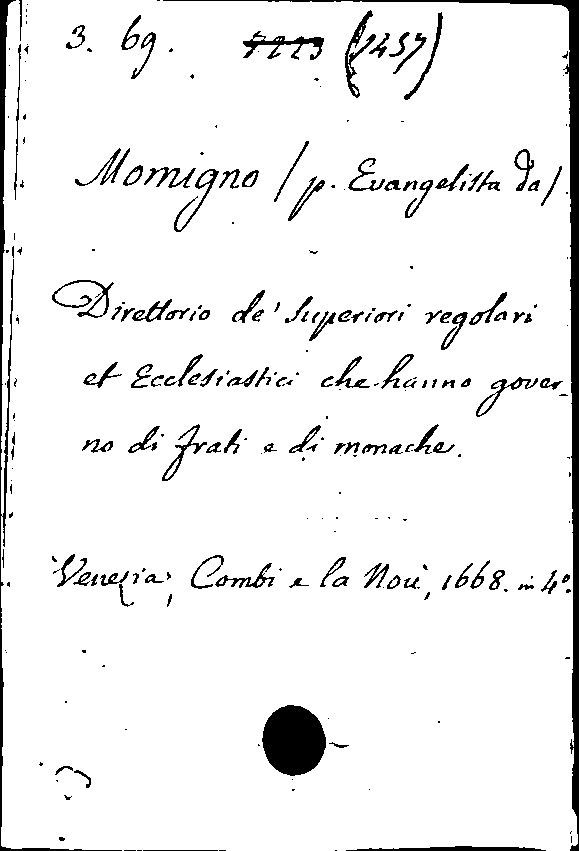 3. 69. 7223 (7457)
Momigno / p. Evangelista da /
Direttorio de' Superiori regolari
et Ecclesiastici che hanno gover-
no di frati e di monache.
Venezia, Combi e la Noù, 1668. in 4º.